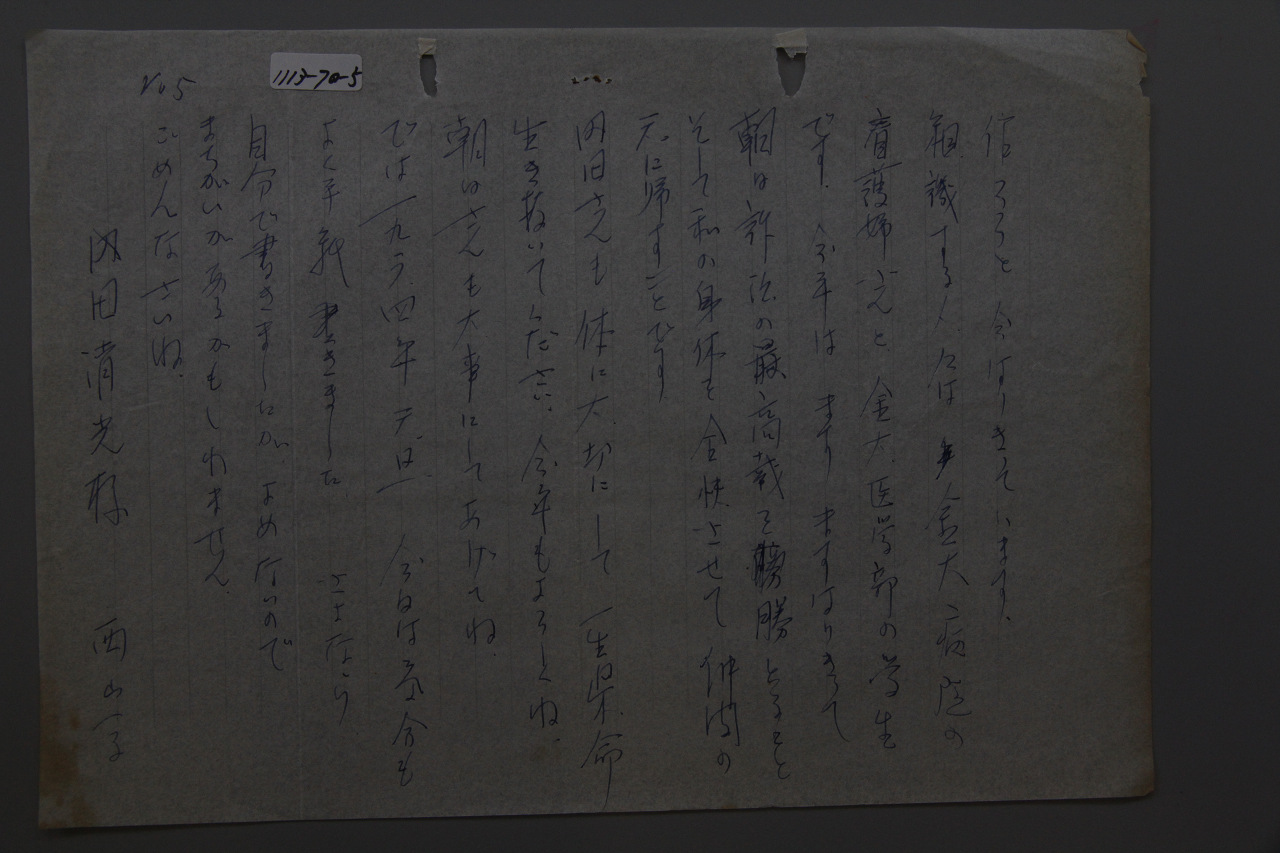 1113-70-5
No5
作ろうと 会はりきています。
組識する人々は 金大病院の
看護婦さんと 金大医学部の学生
です。今年は ますりますはりきって
朝日訴訟の最高裁を勝とること
そして私の身体を全快させて 仲間の
元に帰すことです
内田さんも 体に大切にして 一生県命
生き抜いてください。今年もよろしくね。
朝はさんも大事にしてあげてね。
では一九六四年元旦 今日は気分も
よく年載書きました。 さよなら
自分で書きましたが、よめないので
まちがいがあるかもしれません
ごめんなさいね。
内田清光様 西山